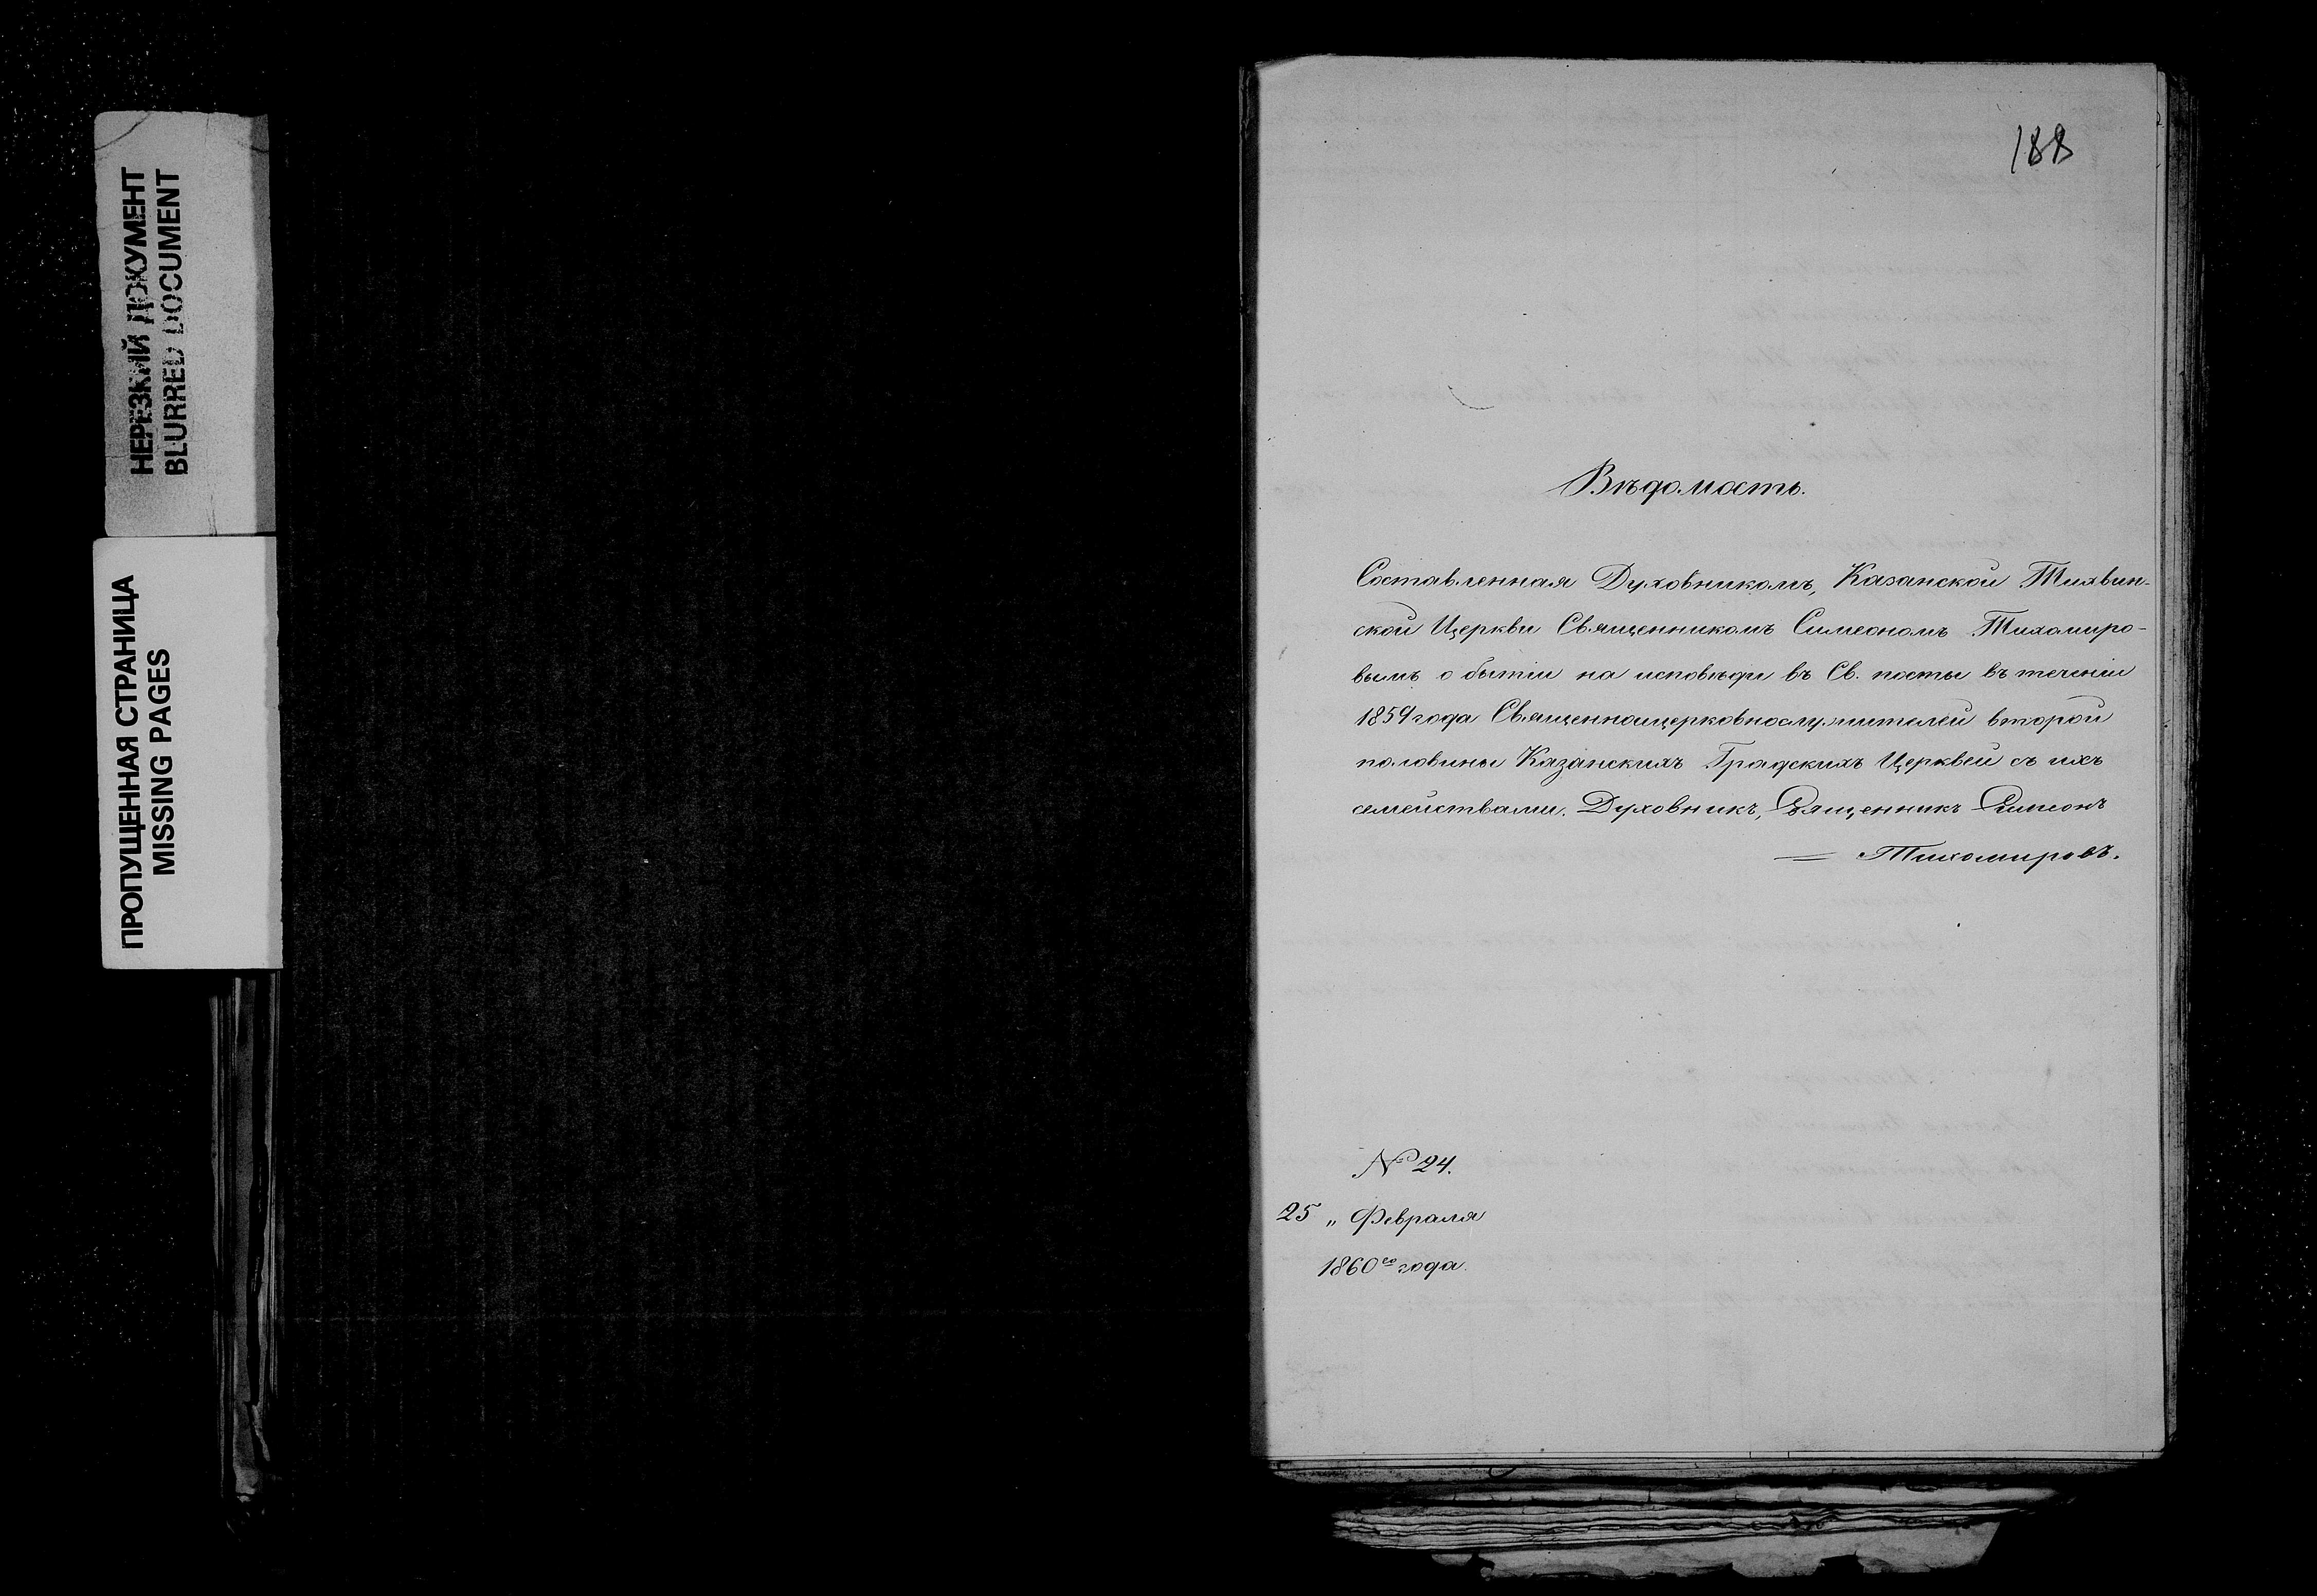 НЕРЕЗКИЙ ДОКУМЕНТ
BLURRED DOCUMENT
ПРОПУЩЕННАЯ СТРАНИЦА
MISSING PAGES
188
Вѣдомость.
Составленная Духовникомъ, Казанской Тихвин-
ской Церкви Священникомъ Симеономъ Тихомиро-
вымъ о бытіи на исповѣди въ Св. посты въ теченіи
1859 года Священноцерковнослужителей второй
половины Казанскихъ Градскихъ Церквей съ ихъ
семействами. Духовникъ, Священникъ Симеонъ
Тихомировъ.
№ 24.
25 „ Февраля
1860го года.